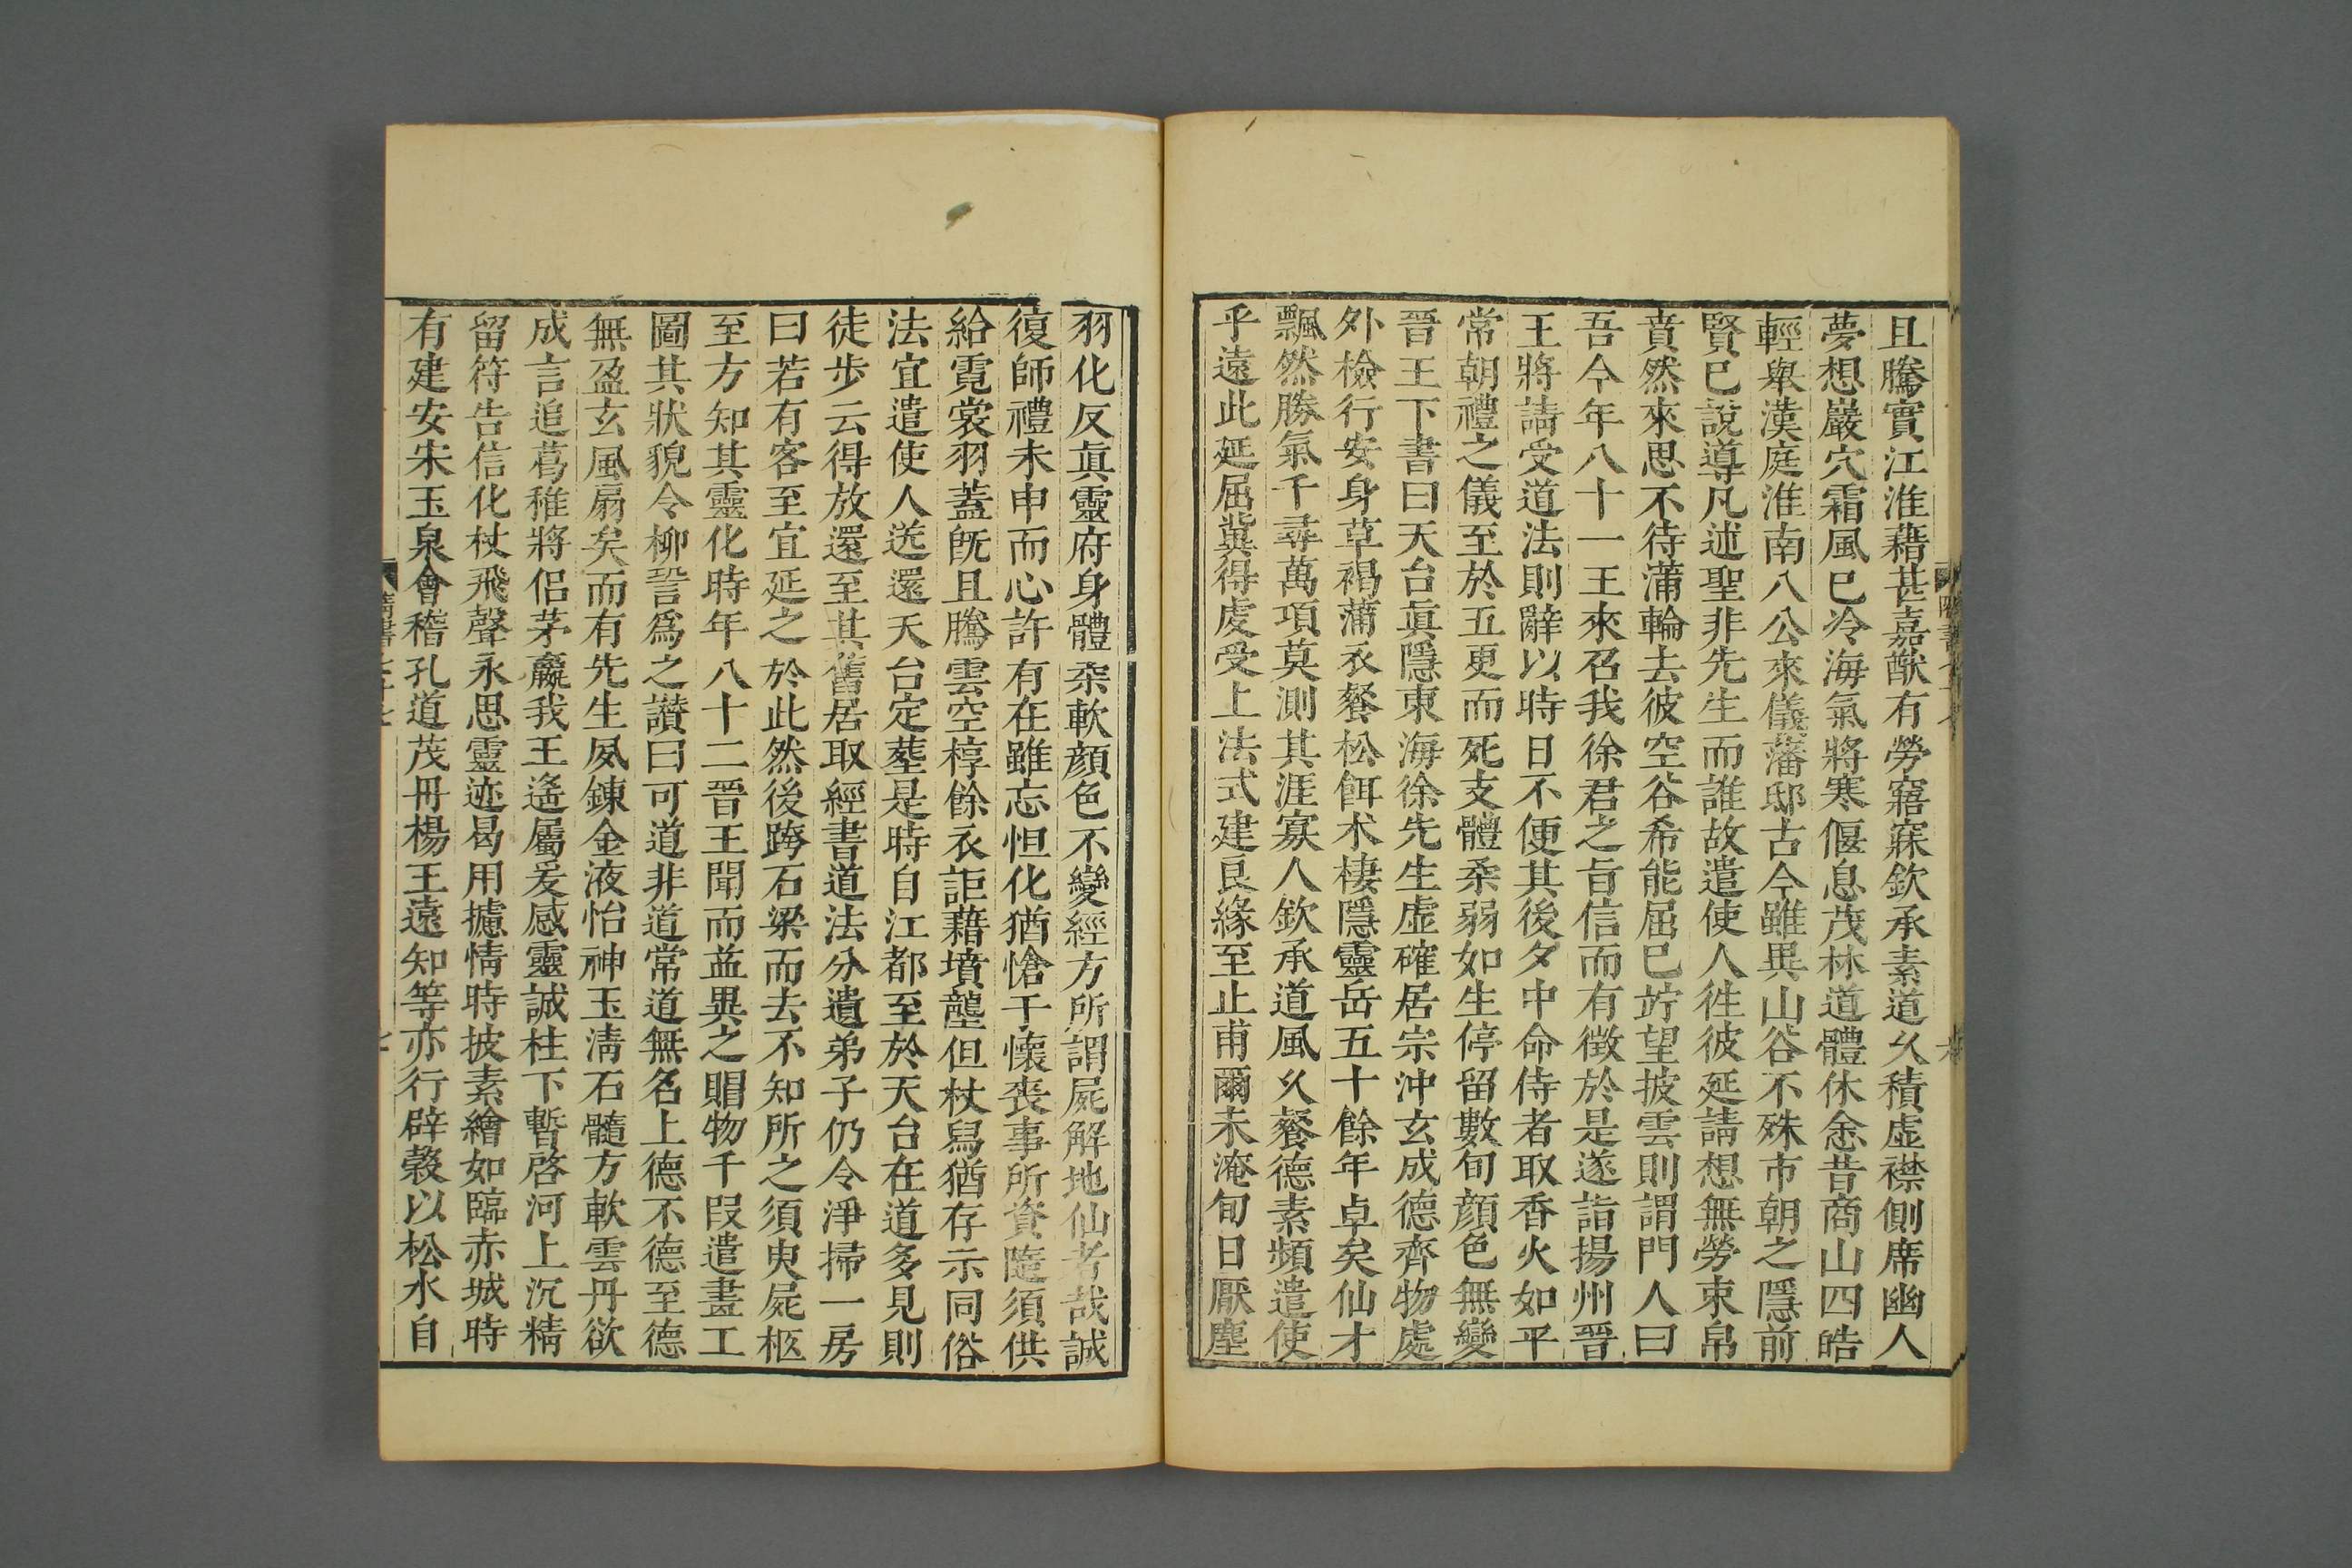 且騰實江淮藉甚嘉猷有勞寤寐欽承素道久積虛襟側席幽人
夢想巖穴霜風已冷海氣將寒偃息茂林道體休悆昔商山四皓
輕舉漢庭淮南八公來儀藩邸古今雖異山谷不殊市朝之隱前
賢已說導凡述聖非先生而誰故遣使人徃彼延請想無勞束帛
賁然來思不待蒲輪去彼空谷希能屈已竚望披雲則謂門人曰
吾今年八十一王來召我徐君之旨信而有徵於是遂詣揚州晉
王將請受道法則辭以時日不便其後夕中命侍者取香火如平
常朝禮之儀至於五更而死支體柔弱如生停留數旬顔色無變
晉王下書曰天台眞隱東海徐先生虛確居宗沖玄成德齊物處
外檢行安身草褐蒲衣餐松餌术棲隱靈岳五十餘年卓矣仙才
飄然勝氣千尋萬項莫測其涯寡人欽承道風久餐德素頻遣使
乎遠此延屈冀得處受上法式建良緣至止甫爾未淹旬日厭塵
羽化反眞靈府身體柔軟顔色不變經方所謂屍解地仙者哉誠
復師禮未申而心許有在雖忘怛化猶愴于懷喪事所資隨須供
給霓裳羽蓋旣且騰雲空椁餘衣詎藉墳壟但杖舄猶存示同俗
法宜遣使人送還天台定塟是時自江都至於天台在道多見則
徒步云得放還至其舊居取經書道法分遺弟子仍令淨掃一房
曰若有客至宜延之於此然後跨石梁而去不知所之須臾屍柩
至方知其靈化時年八十二晉王聞而益異之賵物千叚遣畫工
圖其狀貌令柳䛒爲之讃曰可道非道常道無名上德不德至德
無盈玄風扇矣而有先生夙鍊金液怡神玉清石髓方軟雲丹欲
成言追葛稚將侶茅嬴我王遙屬爰感靈誠柱下暫啓河上沉精
留符告信化杖飛聲永思靈迹曷用攄情時披素繪如臨赤城時
有建安宋玉泉會稽孔道茂丹楊王遠知等亦行辟榖以松水自